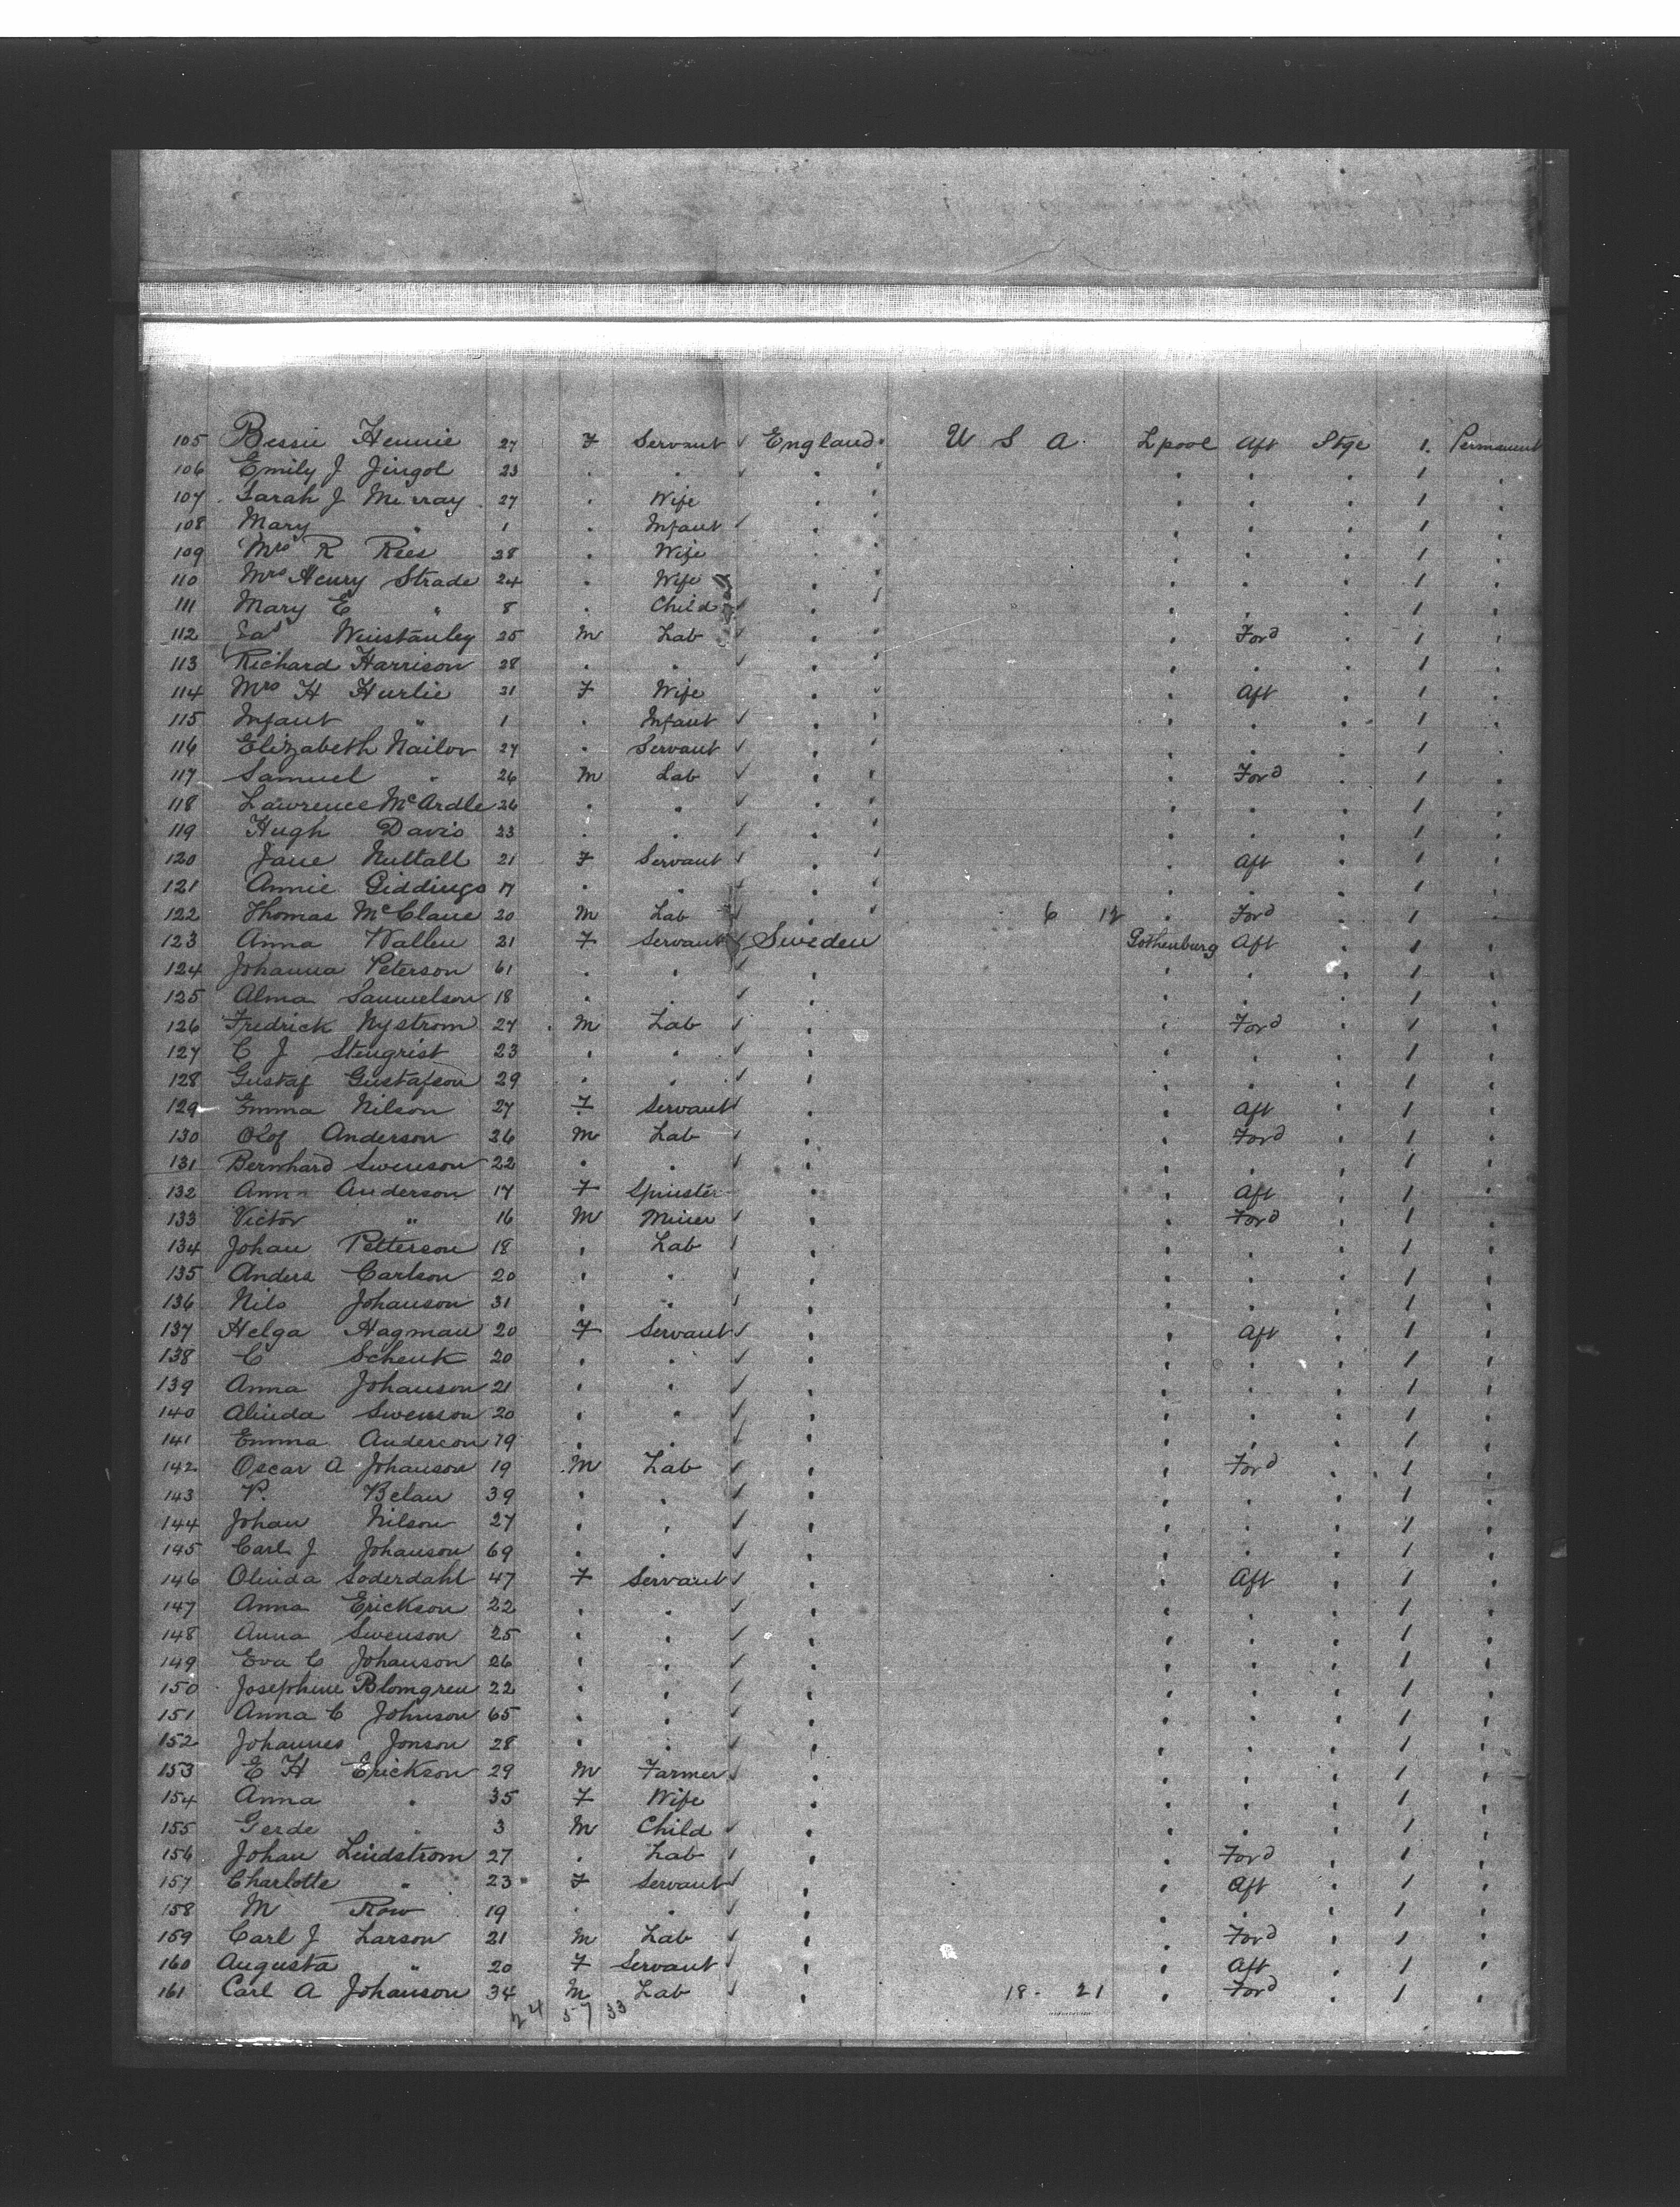 105 Bessie Hennie 27 F Servant √ England " U S A Lpool Aft Stge 1. Permanent
106 Emily J Jingol 23 . . . " . . . 1 .
107 Sarah J Murray 27 . Wife . " . . . 1 .
108 Mary " 1 . Infant √ . " . . . 1 .
109 Mrs R Rees 28 . Wife . " . . . 1 .
110 Mrs Henry Strade 24 . Wife . " . . . 1 .
111 Mary E " 8 . Child √ . " . . . 1 .
112 Jas Winstanley 25 M Lab √ . " . Ford . 1 .
113 Richard Harrison 28 . . √ . " . . . 1 .
114 Mrs H Hurlie 21 F Wife . " . Aft . 1 .
115 Infant " 1 . Infant √ . " . . . 1 .
116 Elizabeth Nailor 27 . Servant √ . " . . . 1 .
117 Samuel " 26 M Lab √ . " . Ford . 1 .
118 Lawrence McArdle 26 . . √ . " . . . 1 .
119 Hugh Davis 23 . . √ . " . . . 1 .
120 Jane Nuttall 21 F Servant √ . " . Aft . 1 .
121 Annie Giddings 17 . . √ . " . . . 1 .
122 Thomas McClane 20 M Lab √ . " 6 12 . Ford . 1 .
123 Anna Wallen 21 F Servant √ Sweden Gothenburg Aft . 1 .
124 Johanna Peterson 61 . . √ . . . . 1 .
125 Alma Samuelson 18 . . √ . . . . 1 .
126 Fredrick Nystrom 27 M Lab √ . . Ford . 1 .
127 C J Stengrist 23 . . √ . . . . 1 .
128 Gustaf Gustafson 29 . . √ . . . . 1 .
129 Emma Nilson 27 F Servant √ . . Aft . 1 .
130 Olof Anderson 26 M Lab √ . . Ford . 1 .
131 Bernhard Swenson 22 . . √ . . . . 1 .
132 Anna Anderson 17 F Spinster . . Aft . 1 .
133 Victor " 16 M Miner √ . . Ford . 1 .
134 Johan Petterson 18 . Lab √ . . . . 1 .
135 Anders Carlson 20 . . √ . . . . 1 .
136 Nils Johanson 31 . . √ . . . . 1 .
137 Helga Hagman 20 F Servant √ . . Aft . 1 .
138 C Schenk 20 . . √ . . . . 1 .
139 Anna Johanson 21 . . √ . . . . 1 .
140 Alinda Swenson 20 . . √ . . . . 1 .
141 Emma Anderson 19 . . √ . . . . 1 .
142 Oscar A Johanson 19 M Lab √ . . Ford . 1 .
143 P. Belan 39 . . √ . . . . 1 .
144 Johan Nilson 27 . . √ . . . . 1 .
145 Carl J Johanson 69 . . √ . . . . 1 .
146 Olinda Soderdahl 47 F Servant √ . . Aft . 1 .
147 Anna Erickson 22 . . √ . . . . 1 .
148 Anna Swenson 25 . . √ . . . . 1 .
149 Eva C Johanson 26 . . √ . . . . 1 .
150 Josephine Blomgren 22 . . √ . . . . 1 .
151 Anna C Johnson 65 . . √ . . . . 1 .
152 Johannes Jonson 28 . . √ . . . . 1 .
153 E H Erickson 29 M Farmer √ . . . . 1 .
154 Anna " 35 F Wife . . . . 1 .
155 Gerde " 3 M Child √ . . . . 1 .
156 Johan Lindstrom 27 . Lab √ . . Ford . 1 .
157 Charlotte " 23 F Servant √ . . Aft . 1 .
158 M Row 19 . . √ . . . . 1 .
159 Carl J Larson 21 M Lab √ . . Ford . 1 .
160 Augusta " 20 F Servant √ . . Aft . 1 .
161 Carl A Johanson 34 M Lab √ . 18 - 21 . Ford . 1 .
24 57 33